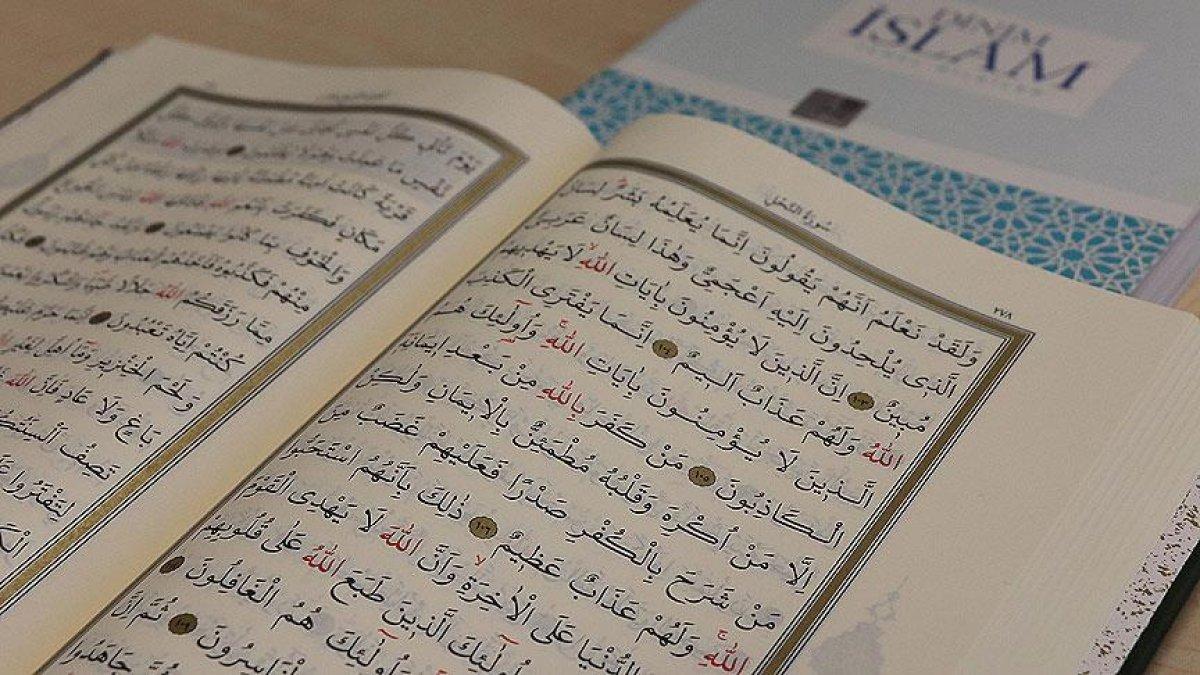 DİNİM
İSLAM
سُورَةُ النَّحْلِ
٢٧٨
وَلَقَدْ نَعْلَمُ اَنَّهُمْ يَقُولُونَ اِنَّمَا يُعَلِّمُهُ بَشَرٌ لِسَانُ
الَّذٖى يُلْحِدُونَ اِلَيْهِ اَعْجَمِىٌّ وَهٰذَا لِسَانٌ عَرَبِىٌّ
مُبٖينٌ ١٠٣ اِنَّ الَّذٖينَ لَا يُؤْمِنُونَ بِاٰيَاتِ اللّٰهِ لَا يَهْدٖيهِمُ
اللّٰهُ وَلَهُمْ عَذَابٌ اَلٖيمٌ ١٠٤ اِنَّمَا يَفْتَرِى الْكَذِبَ
الَّذٖينَ لَا يُؤْمِنُونَ بِاٰيَاتِ اللّٰهِ وَاُولٰٓئِكَ هُمُ
الْكَاذِبُونَ ١٠٥ مَنْ كَفَرَ بِاللّٰهِ مِنْ بَعْدِ اٖيمَانِهٖ
اِلَّا مَنْ اُكْرِهَ وَقَلْبُهُ مُطْمَئِنٌّ بِالْاٖيمَانِ وَلٰكِنْ
مَنْ شَرَحَ بِالْكُفْرِ صَدْرًا فَعَلَيْهِمْ غَضَبٌ مِنَ
اللّٰهِ وَلَهُمْ عَذَابٌ عَظٖيمٌ ١٠٦ ذٰلِكَ بِاَنَّهُمُ اسْتَحَبُّوا
الدُّنْيَا عَلَى الْاٰخِرَةِ وَاَنَّ اللّٰهَ لَا يَهْدِى الْقَوْمَ
اُولٰٓئِكَ الَّذٖينَ طَبَعَ اللّٰهُ عَلٰى قُلُوبِهِمْ
وَاُولٰٓئِكَ هُمُ الْغَافِلُونَ ١٠٨
الْخَاسِرُونَ ١٠٩ ثُمَّ اِنَّ
جَاهَدُوا
يَوْمَ تَاْتٖى كُلُّ نَفْسٍ
نَفْسٍ مَا عَمِلَتْ وَهُمْ لَا يُظْلَمُونَ
قَرْيَةً كَانَتْ اٰمِنَةً
مَكَانٍ فَكَفَرَتْ بِاَنْعُمِ اللّٰهِ
وَالْخَوْفِ بِمَا كَانُوا يَصْنَعُونَ
مِنْهُمْ فَكَذَّبُوهُ
مِمَّا رَزَقَكُمُ اللّٰهُ حَلَالًا طَيِّبًا
كُنْتُمْ اِيَّاهُ تَعْبُدُونَ
وَلَحْمَ الْخِنْزٖيرِ وَمَا اُهِلَّ لِغَيْرِ
بَاغٍ وَلَا عَادٍ فَاِنَّ اللّٰهَ
تَصِفُ اَلْسِنَتُكُمُ
لِتَفْتَرُوا